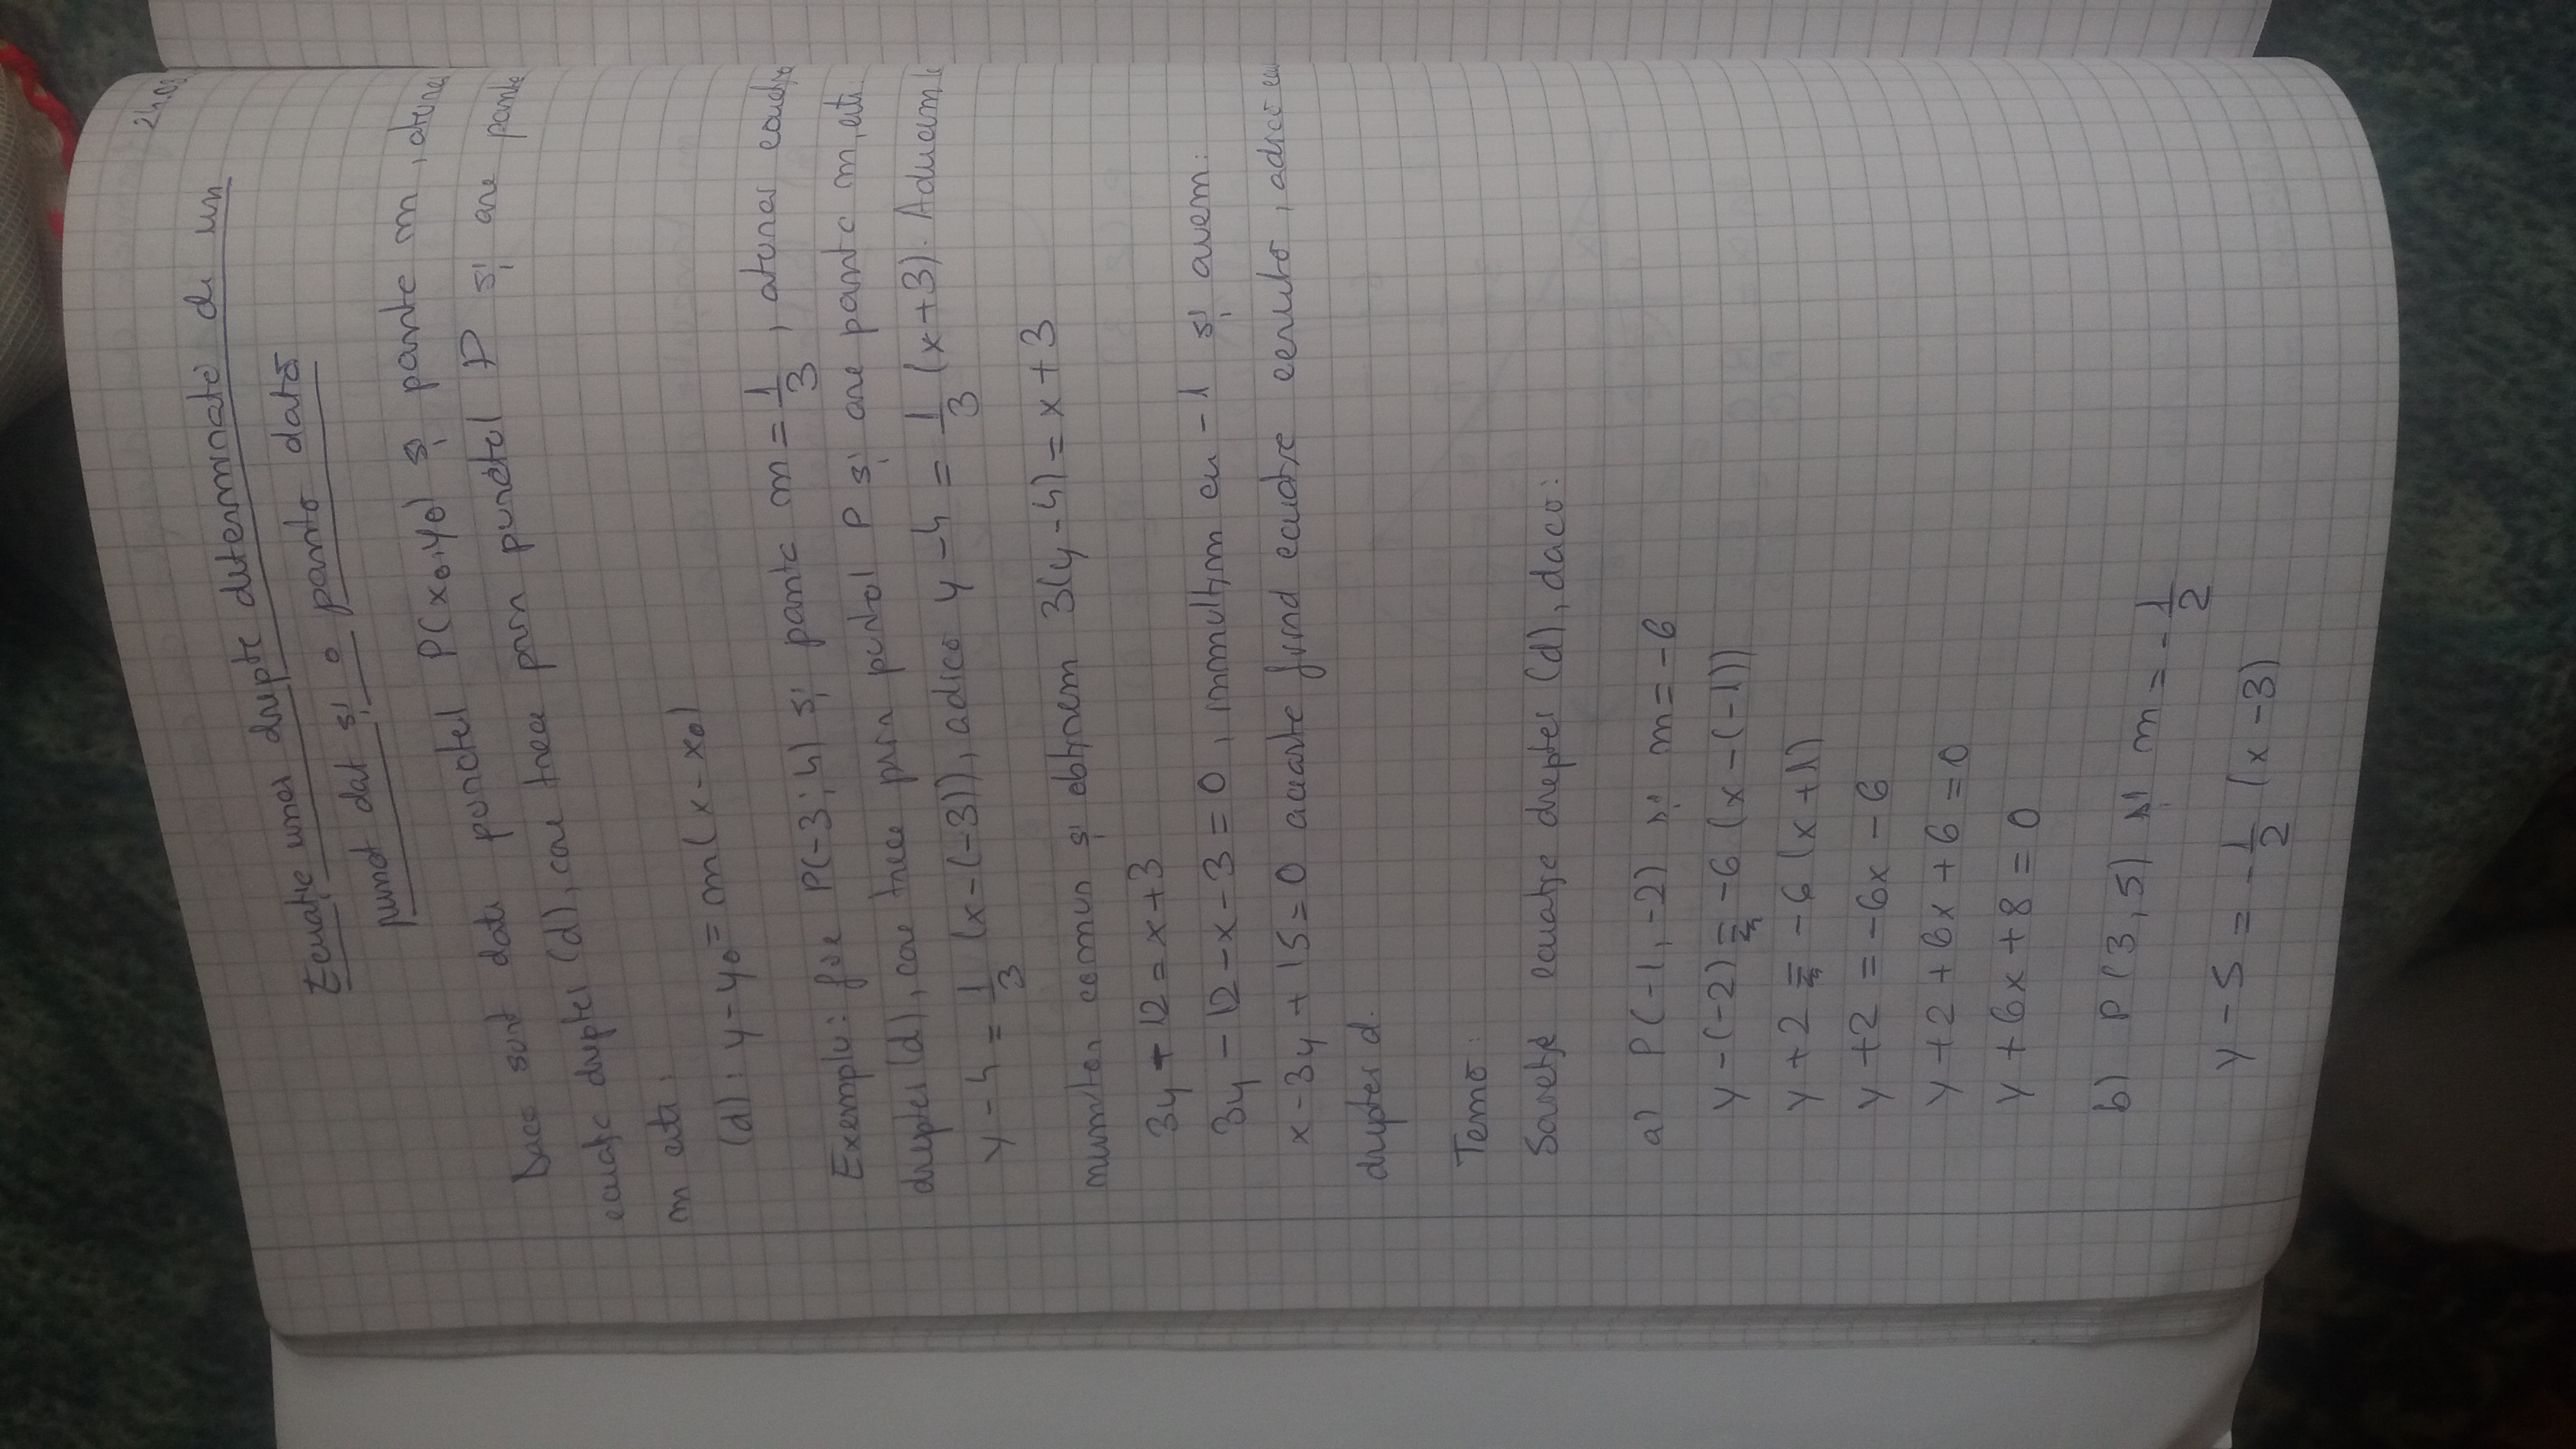 24.03
Ecuația unei drepte determinate de un
punct dat și o pantă dată
Dacă sunt date punctul P(x0,y0) și panta m, atunci
ecuația dreptei (d), care trece prin punctul P și are panta
m este:
(d): y-y0 = m(x-x0)
Exemplu: fie P(-3;4) și panta m = 1/3, atunci ecuația
dreptei (d), care trece prin puctul P și are panta m, este:
y-4 = 1/3 (x-(-3)), adică y-4 = 1/3 (x+3). Aducem la
numitor comun și obținem 3(y-4) = x+3
3y-12 = x+3
3y-12-x-3=0, înmulțim cu -1 și avem:
x-3y+15=0 aceasta fiind ecuația cerută, adică
dreptei d.
Temă:
Scrieți ecuația dreptei (d), dacă:
a) P(-1,-2) și m=-6
y-(-2) = -6(x-(-1))
y+2 = -6(x+1)
y+2 = -6x-6
y+2+6x+6=0
y+6x+8=0
b) P(3,5) și m = -1/2
y-5 = -1/2 (x-3)